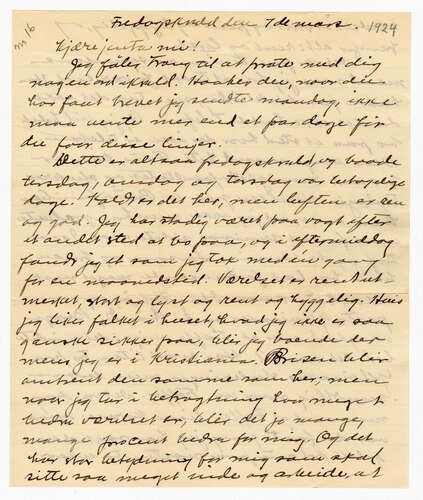 no 16
Fredagskveld den 7de mars. 1924
Kjære jenta mi!
Jeg føler trang til at prate med dig
nogen ord ikveld. Haaber du, naar du
har faat brevet jeg sendte mandag, ikke
maa vente mer end et par dage før
du faar disse linjer.
Dette er altsaa fredagskveld, og baade
tirsdag, onsdag og torsdag var behagelige
dage. Koldt er det her, men luften er ren
og god. Jeg har stadig været paa vogt efter
et andet sted at bo paa, og i eftermiddag
fandt jeg et som jeg tok med en gang
for en maanedstid. Værelset er rent ut-
merket, stort og lyst og rent og hyggelig. Hvis
jeg liker folket i huset, hvad jeg ikke er saa
ganske sikker paa, blir jeg boende der
mens jeg er i Kristiania. Prisen blir
omtrent den samme som her; men
naar jeg tar i betragtning hvor meget
bedre værelset er, blir det jo mange,
mange procent bedre for mig. Og det
har stor betydning for mig som skal
sitte saa meget inde og arbeide, at